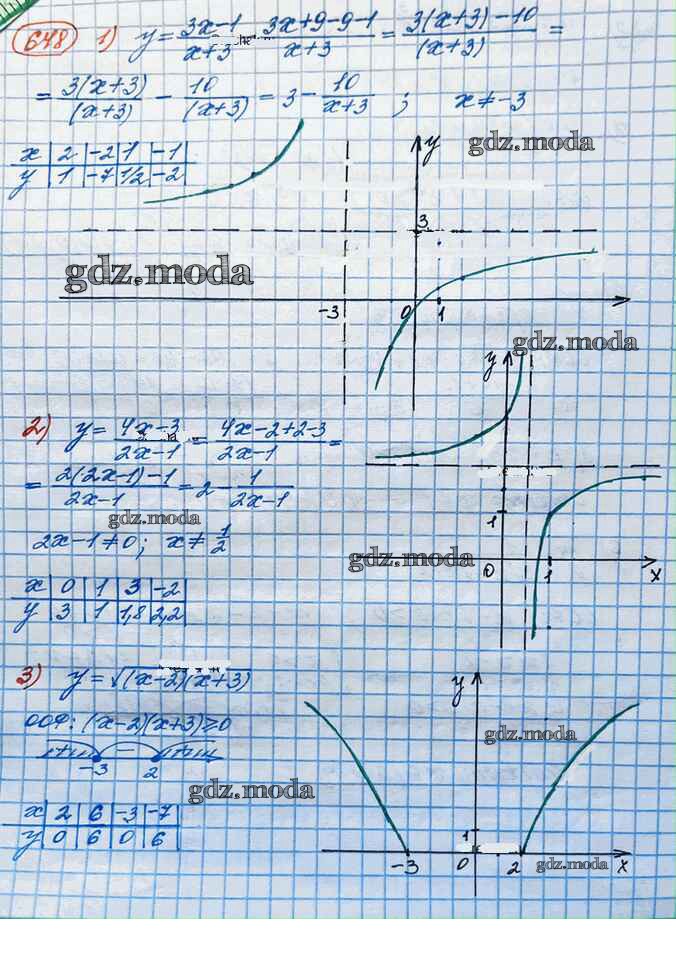 648 1) y = (3x-1)/(x+3) = (3x+9-9-1)/(x+3) = (3(x+3)-10)/(x+3) =
= (3(x+3))/(x+3) - 10/(x+3) = 3 - 10/(x+3) ; x ≠ -3
gdz.moda
x | 2 | -2 | 1 | -1
y | 1 | -7 | 1/2 | -2
y
3
gdz.moda
-3 0 1
gdz.moda
y
2) y = (4x-3)/(2x-1) = (4x-2+2-3)/(2x-1) =
= (2(2x-1)-1)/(2x-1) = 2 - 1/(2x-1)
gdz.moda
1
2x-1≠0; x ≠ 1/2
gdz.moda
0 1 x
x | 0 | 1 | 3 | -2
y | 3 | 1 | 1,8 | 2,2
3) y = √(x-2)(x+3)
y
ООФ: (x-2)(x+3) ≥ 0
gdz.moda
+ - +
-3 2
gdz.moda
x | 2 | 6 | -3 | -7
y | 0 | 6 | 0 | 6
1
-3 0 2 x
gdz.moda